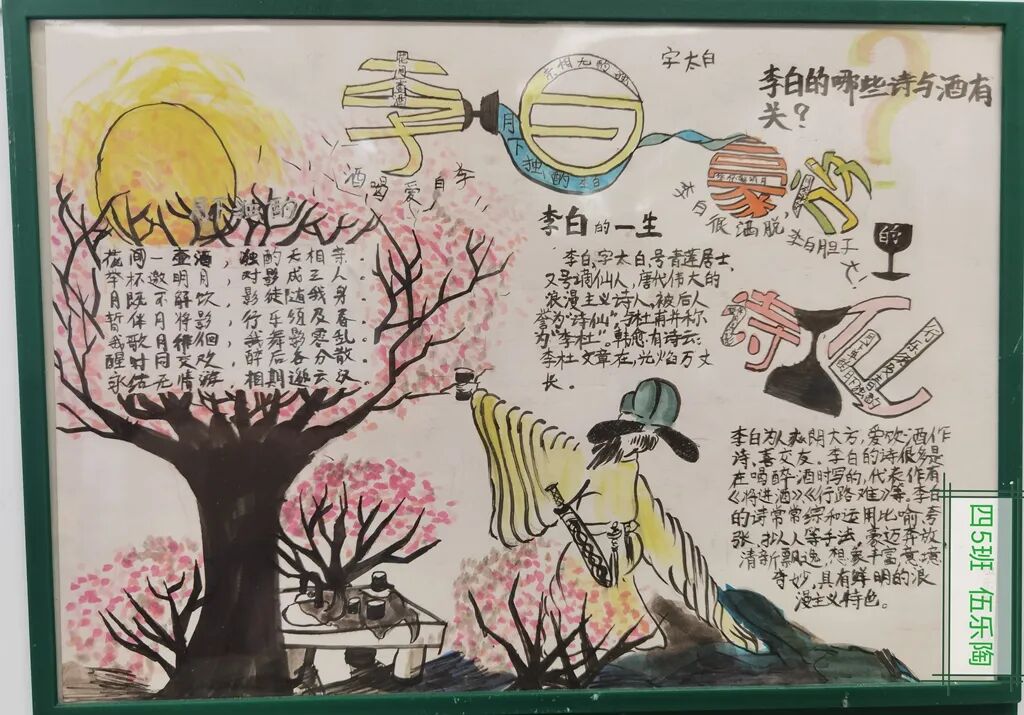 李白
字太白
月下独酌
酒喝爱白李
豪
李白很洒脱,
李白胆子大,
的
诗
李白的哪些诗与酒有
关?
月下独酌
花间一壶酒,独酌无相亲。
举杯邀明月,对影成三人。
月既不解饮,影徒随我身。
暂伴月将影,行乐须及春。
我歌月徘徊,我舞影零乱。
醒时同交欢,醉后各分散。
永结无情游,相期邈云汉。
李白的一生
李白,字太白,号青莲居士,
又号谪仙人,唐代伟大的
浪漫主义诗人,被后人
誉为“诗仙”,与杜甫并称
为“李杜”。韩愈有诗云:
李杜文章在,光焰万丈
长。
李白为人爽朗大方,爱饮酒作
诗,喜交友。李白的诗很多是
在喝醉酒时写的,代表作有
《将进酒》《行路难》等,李白
的诗常常综和运用比喻、夸
张、拟人等手法,豪迈奔放,
清新飘逸,想象丰富,意境
奇妙,具有鲜明的浪
漫主义特色。
四5班 伍乐陶